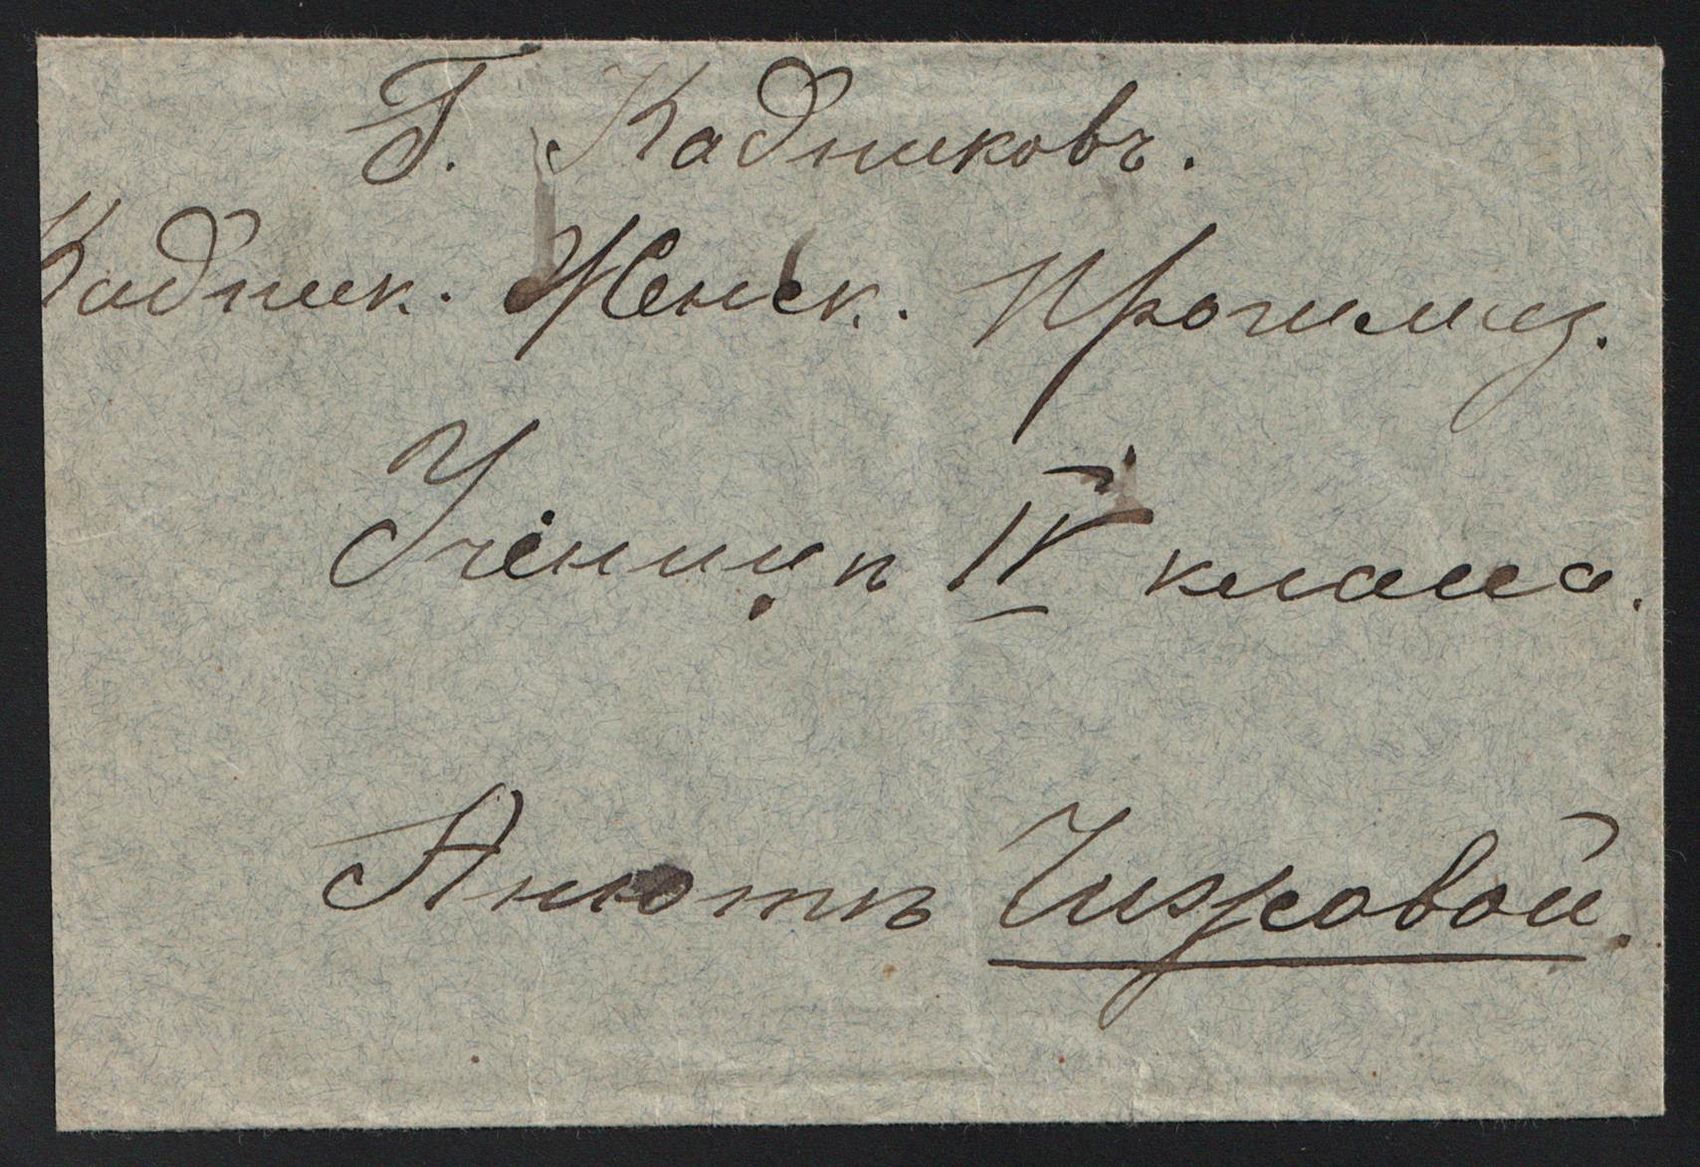 Г. Кадниковъ.
Кадник. Женск. Прогимназ.
Ученицѣ IV класса.
Анютѣ Чизровой.